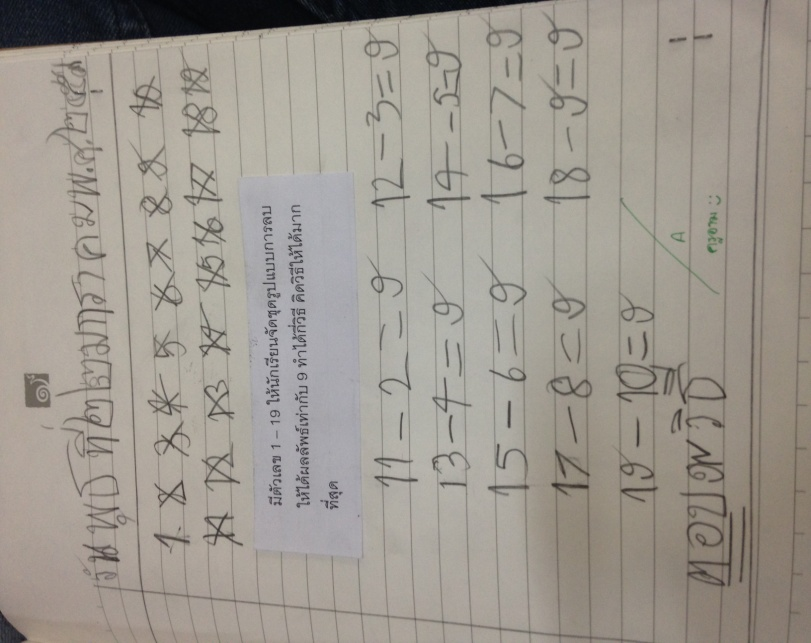 ๑๙
วัน พุธ ที่
1 2 3 4 5 6 7 8 9 10
11 12 13 14 15 16 17 18 19
มีตัวเลข 1 – 19 ให้นักเรียนจัดชุดรูปแบบการลบ
ให้ได้ผลลัพธ์เท่ากับ 9 ทำได้กี่วิธี คิดวิธีให้ได้มาก
ที่สุด
11 – 2 = 9 12 – 3 = 9
13 – 4 = 9 14 – 5 = 9
15 – 6 = 9 16 – 7 = 9
17 – 8 = 9 18 – 9 = 9
19 – 10 = 9
A
ตอบ ๙ วิธี